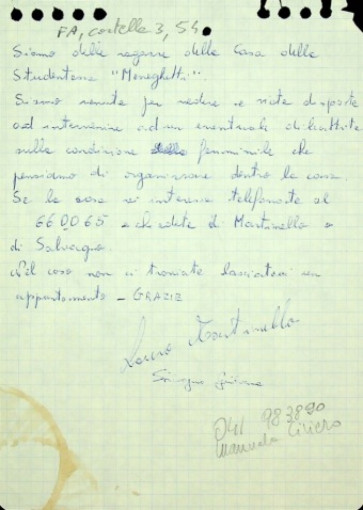 FA, cartella 3, 54.
Siamo delle ragazze della Casa della
Studentessa "Meneghetti".
Siamo venute per vedere se siete disposte
ad intervenire ad un eventuale dibattito
sulla condizione femminile che
pensiamo di organizzare dentro la casa.
Se la cosa vi interessa telefonate al
660065 e chiedete di Martinello o
di Salvagno.
Nel caso non ci troviate lasciateci un
appuntamento - GRAZIE
Martinello
041 983890
Emanuela